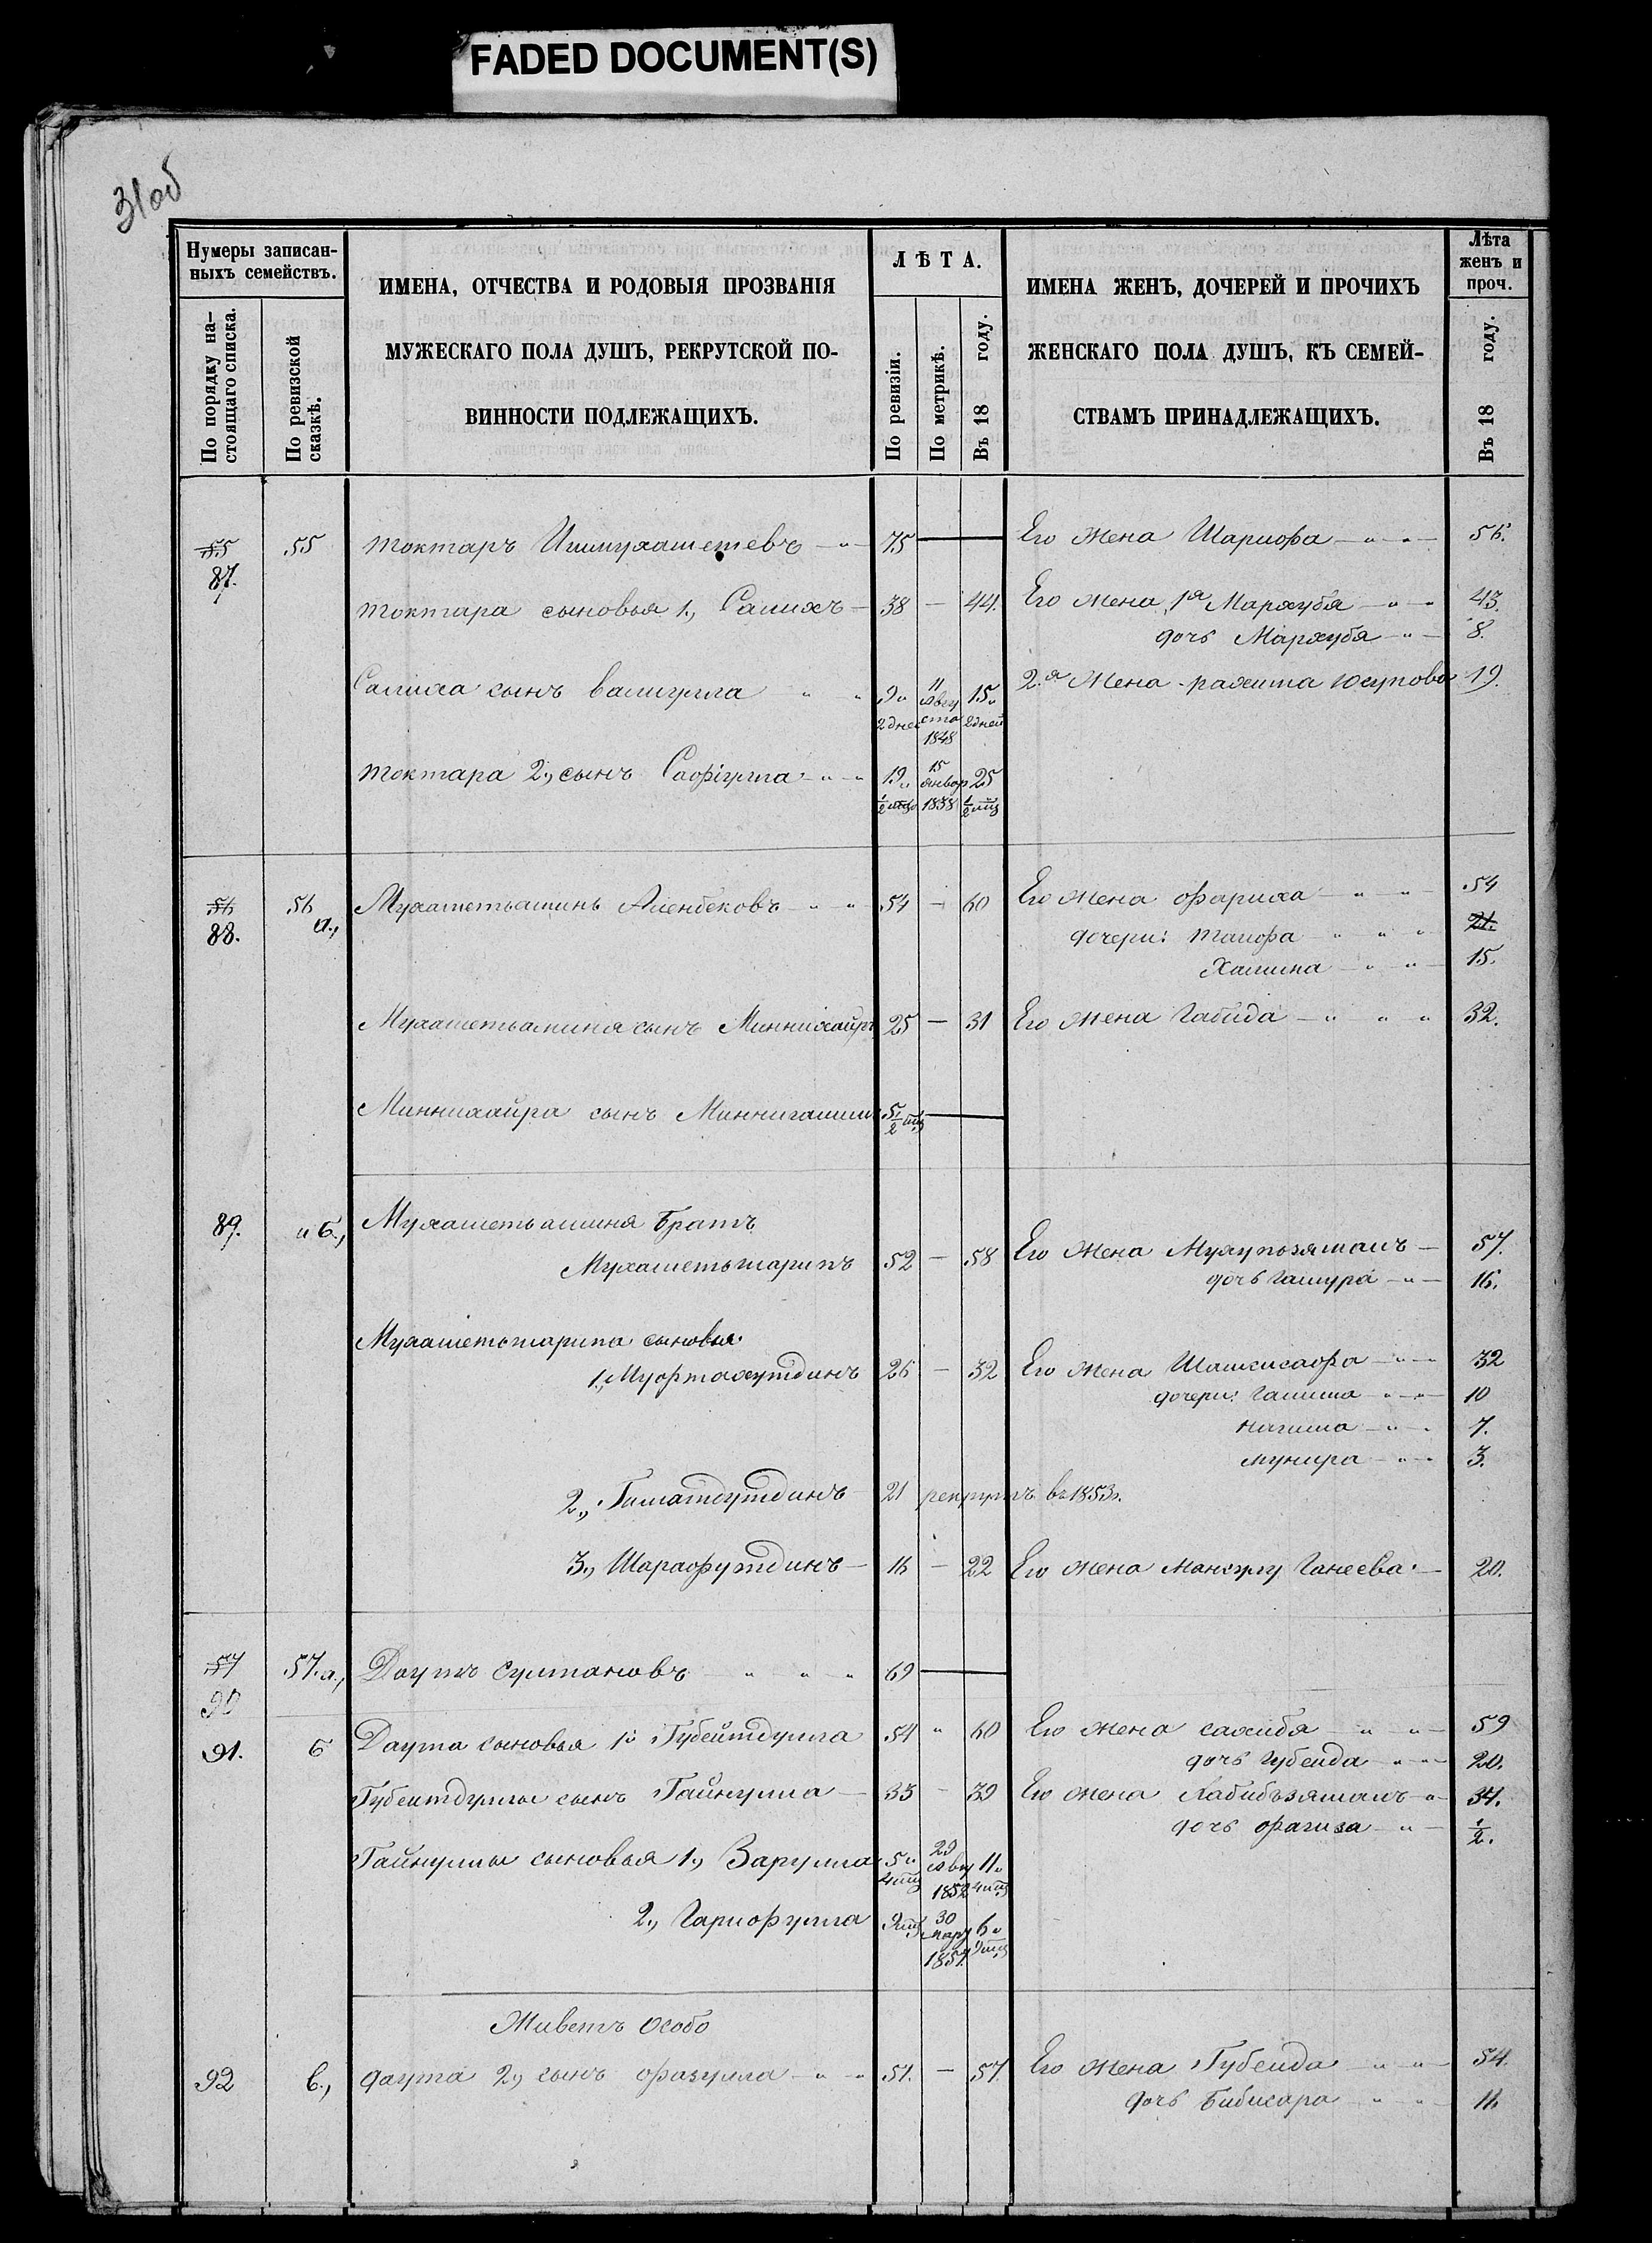 FADED DOCUMENT(S)
31об
Нумеры записан-
ныхъ семействъ.
По порядку на-
стоящаго списка.
По ревизской
сказкѣ.
ИМЕНА, ОТЧЕСТВА И РОДОВЫЯ ПРОЗВАНІЯ
МУЖЕСКАГО ПОЛА ДУШЪ, РЕКРУТСКОЙ ПО-
ВИННОСТИ ПОДЛЕЖАЩИХЪ.
ЛѢТА.
По ревизіи.
По метрикѣ.
Въ 18 году.
ИМЕНА ЖЕНЪ, ДОЧЕРЕЙ И ПРОЧИХЪ
ЖЕНСКАГО ПОЛА ДУШЪ, КЪ СЕМЕЙ-
СТВАМЪ ПРИНАДЛЕЖАЩИХЪ.
Лѣта
женъ и
проч.
Въ 18 году.
55 55 Токтаръ Ишмухаметевъ 75 — Его жена Шарифа 56.
87.
Токтара сыновья 1., Салихъ 38 — 44. Его жена 1я Мархубя 43.
дочь Мархубя 8.
Салиха сынъ Валиулла 9 11 Авгу 15 2.я Жена рахима Юсупова 19.
2 дней ста 2 дней
1848
Токтара 2., сынъ Сафіулла 19 15 январ 25
½ мѣс 1838 ½ мѣс
56 56 Мухаметьаминь Аленбековъ 54 — 60 Его жена Фариха 54
88. а., дочери: Таифа 21.
Халима 15.
Мухаметьаминя сынъ Миннихайръ 25 — 31 Его жена Габида 32.
Миннихайра сынъ 5½ мѣс —
89. и б., Мухаметьаминя братъ
Мухаметьшарипъ 52 — 58 Его жена 57.
дочь Гашура 16.
Мухаметьшарипа сыновья
1., Муфтахутдинъ 26 — 32 Его жена Шамсисафа 32
дочери: Галима 10
нагима 7.
мунира 3.
2., Гиматдутдинъ 21 рекрутъ въ 1853 г.
3., Шарафутдинъ 16 — 22 Его жена Ганеева 20.
57 57. а., Даутъ Султановъ 69 —
90
91. б Даута сыновья 1й Губейтдулла 54 " 60 Его жена сахибя 59
дочь Губейда 20.
Губейтдуллы сынъ Гайнулла 33 — 39 Его жена Хабибьзямалъ 34.
дочь фагиза ½.
Гайнуллы сыновья 1., Зарулла 5 29 Авгу 11
4 мѣс 1852 4 мѣс
2., Гарифулла 9 мѣс 30 мару 6
1857 9 мѣс
Живетъ особо
92 в., Даута 2., сынъ фазулла 51. — 57. Его жена Губейда 54.
дочь Бибисара 11